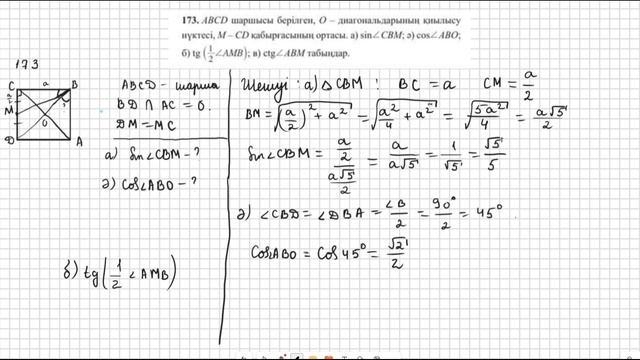 173. ABCD шаршысы берілген, O – диагональдарының қиылысу
нүктесі, M – CD қабырғасының ортасы. а) sin∠CBM; ә) cos∠ABO;
б) tg (1/2 ∠AMB); в) ctg∠ABM табыңдар.
173
C a B
a/2
M
O
D A
ABCD – шаршы
BD ∩ AC = O.
DM = MC
а) Sin∠CBM – ?
ә) Cos∠ABO – ?
б) tg(1/2 ∠AMB)
Шешуі: а) △CBM: BC = a CM = a/2
BM = √((a/2)² + a²) = √(a²/4 + a²) = √(5a²/4) = a√5/2
Sin∠CBM = (a/2)/(a√5/2) = a/(a√5) = 1/√5 = √5/5
ә) ∠CBD = ∠DBA = ∠B/2 = 90°/2 = 45°.
Cos∠ABO = Cos 45° = √2/2